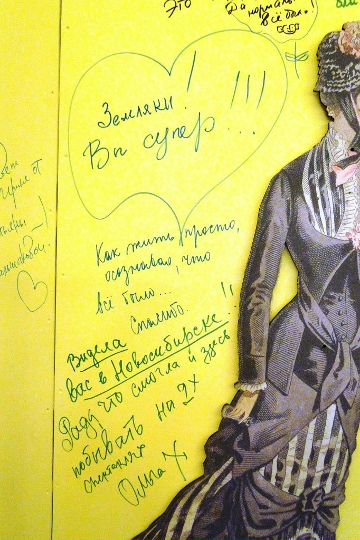 Это
Да
нормально
всё было!
Земляки!
Вы супер...!!!
Как жить просто,
осознавая, что
всё было...
Спасибо.
Видела
вас в Новосибирске!!
Рада, что смогла и здесь
побывать на 2х
спектаклях
Ольга Х
от